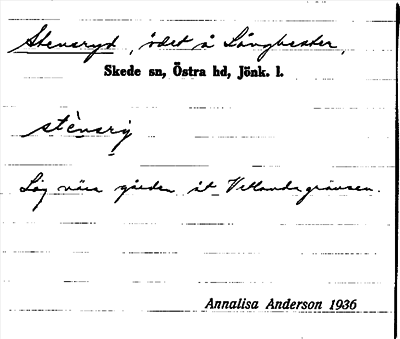 Stensryd, ödet å Långhester,
Skede sn, Östra hd, Jönk. l.
stènsrý
Låg nära gården åt Vetlanda gränsen.
Annalisa Anderson 1936